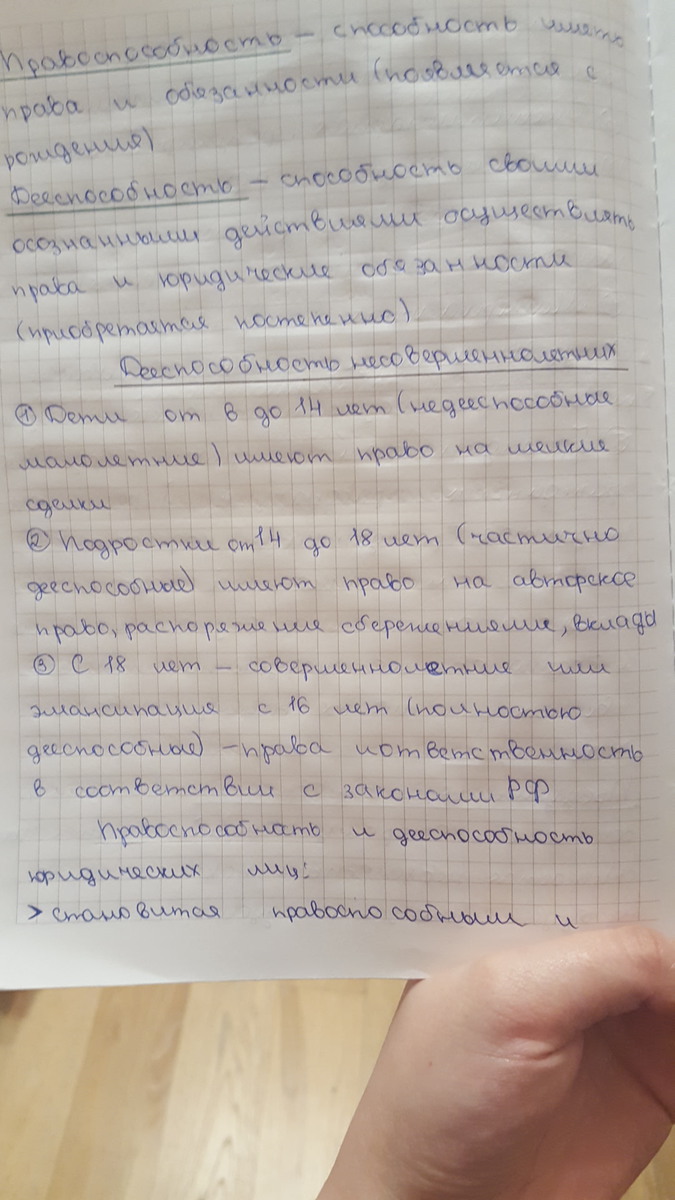 Правоспособность – способность иметь
права и обязанности (появляется с
рождения)
Дееспособность – способность своими
осознанными действиями осуществлять
права и юридические обязанности
(приобретается постепенно)
Дееспособность несовершеннолетних
① Дети от 6 до 14 лет (недееспособные
малолетние) имеют право на мелкие
сделки
② Подростки от 14 до 18 лет (частично
дееспособные) имеют право на авторское
право, распоряжение сбережениями, вклады
③ С 18 лет – совершеннолетние или
эмансипация с 16 лет (полностью
дееспособные) – права и ответственность
в соответствии с законами РФ
Правоспособность и дееспособность
юридических лиц:
> становится правоспособным и